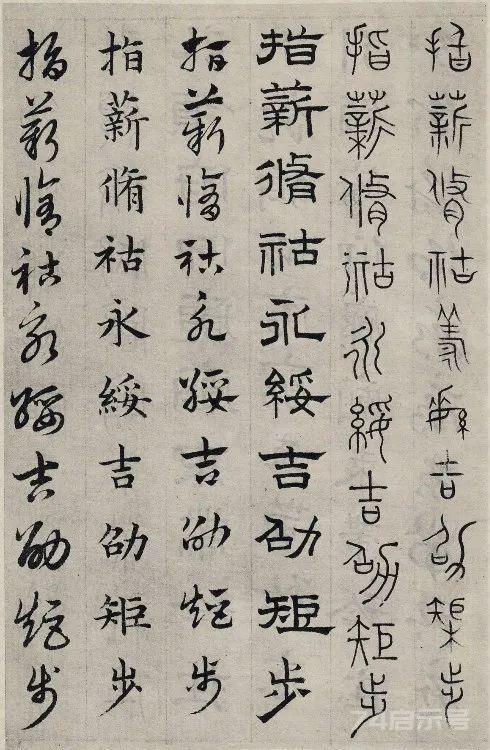 指薪脩祜羕綏吉劭榘步
指薪脩祜永綏吉劭矩步
指薪脩祜永綏吉劭矩步
指薪脩祜永綏吉劭矩步
指薪脩祜永綏吉劭矩步
指薪脩祜永綏吉劭矩步
74启示号